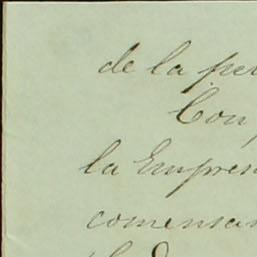 de la pe
Con
la Empres
comensar